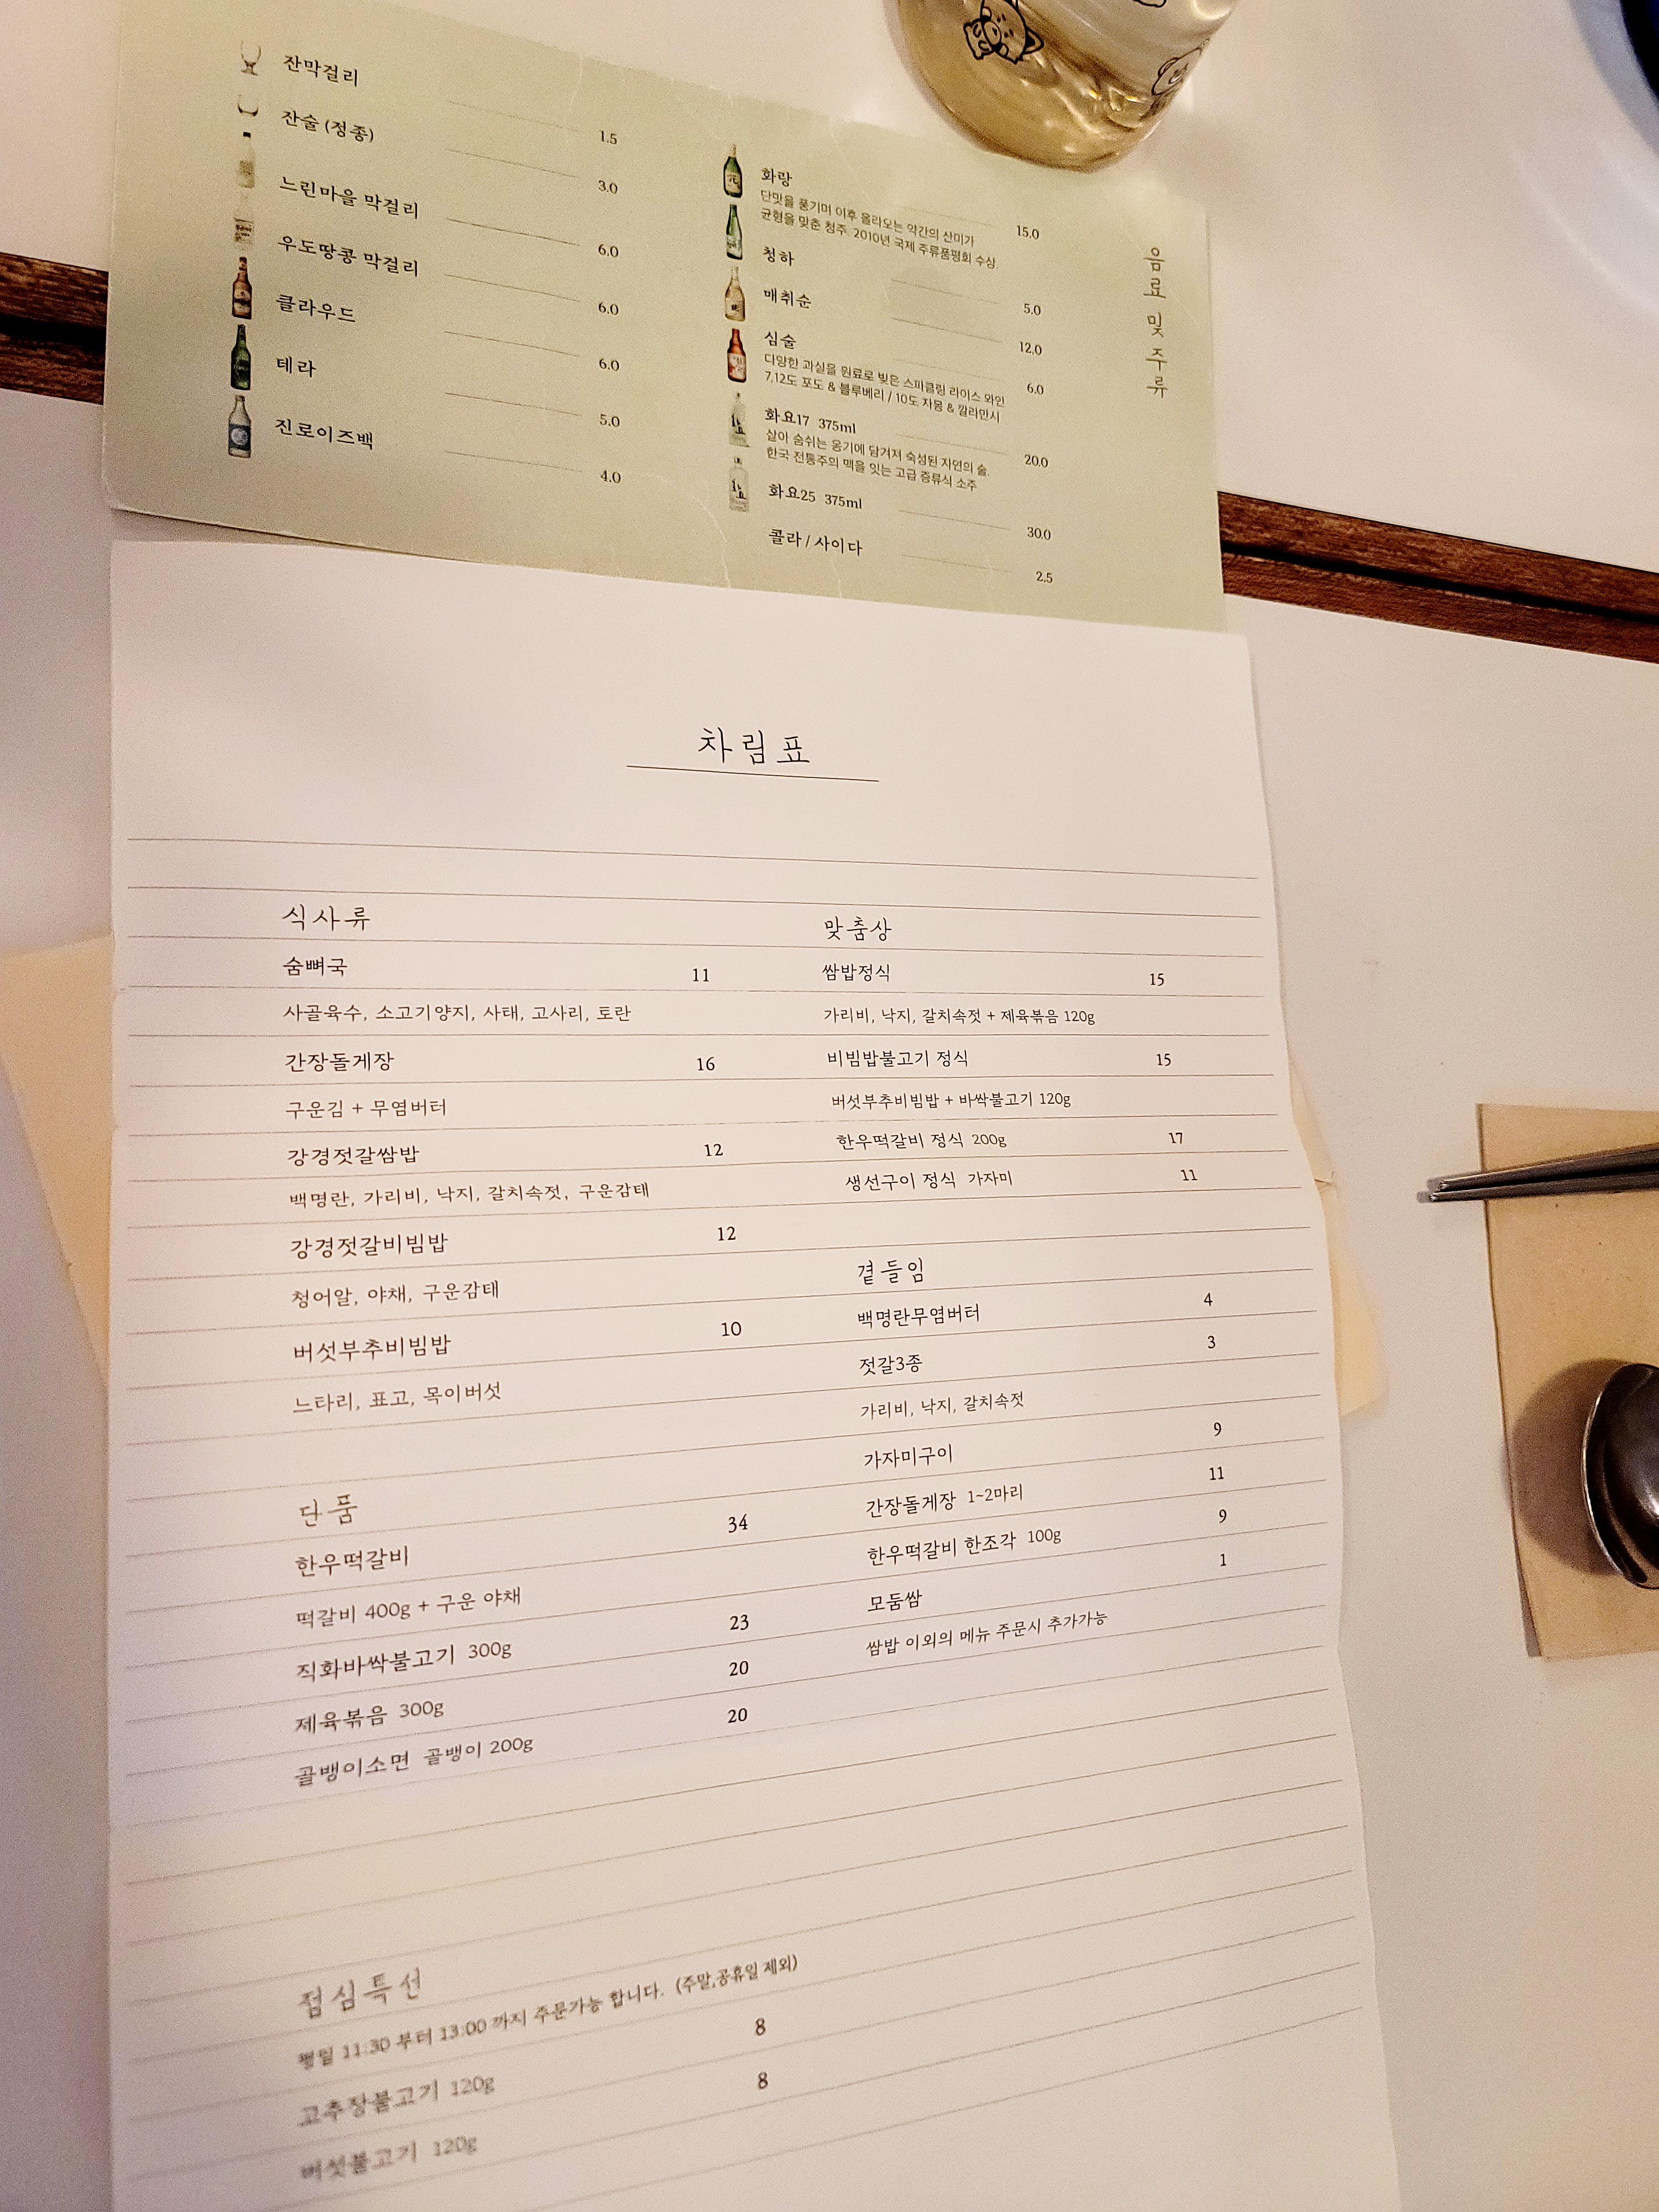 잔막걸리 1.5
잔술 (정종) 3.0
느린마을 막걸리 6.0
우도땅콩 막걸리 6.0
클라우드 6.0
테라 5.0
진로이즈백 4.0
화랑 15.0
단맛을 풍기며 이후 올라오는 약간의 산미가
균형을 맞춘 청주. 2010년 국제 주류품평회 수상.
청하 5.0
매취순 12.0
심술 6.0
다양한 과실을 원료로 빚은 스파클링 라이스 와인
7,12도 포도 & 블루베리 / 10도 자몽 & 깔라만시
화요17 375ml 20.0
살아 숨쉬는 옹기에 담겨져 숙성된 자연의 술.
한국 전통주의 맥을 잇는 고급 증류식 소주
화요25 375ml 30.0
콜라 / 사이다 2.5
음료 및 주류
차림표
식사류
숨뼈국 11
사골육수, 소고기양지, 사태, 고사리, 토란
간장돌게장 16
구운김 + 무염버터
강경젓갈쌈밥 12
백명란, 가리비, 낙지, 갈치속젓, 구운감태
강경젓갈비빔밥 12
청어알, 야채, 구운감태
버섯부추비빔밥 10
느타리, 표고, 목이버섯
단품
한우떡갈비 34
떡갈비 400g + 구운 야채
직화바싹불고기 300g 23
제육볶음 300g 20
골뱅이소면 골뱅이 200g 20
맞춤상
쌈밥정식 15
가리비, 낙지, 갈치속젓 + 제육볶음 120g
비빔밥불고기 정식 15
버섯부추비빔밥 + 바싹불고기 120g
한우떡갈비 정식 200g 17
생선구이 정식 가자미 11
곁들임
백명란무염버터 4
젓갈3종 3
가리비, 낙지, 갈치속젓
가자미구이 9
간장돌게장 1~2마리 11
한우떡갈비 한조각 100g 9
모둠쌈 1
쌈밥 이외의 메뉴 주문시 추가가능
점심특선
평일 11:30 부터 13:00 까지 주문가능 합니다. (주말,공휴일 제외)
고추장불고기 120g 8
버섯불고기 120g 8